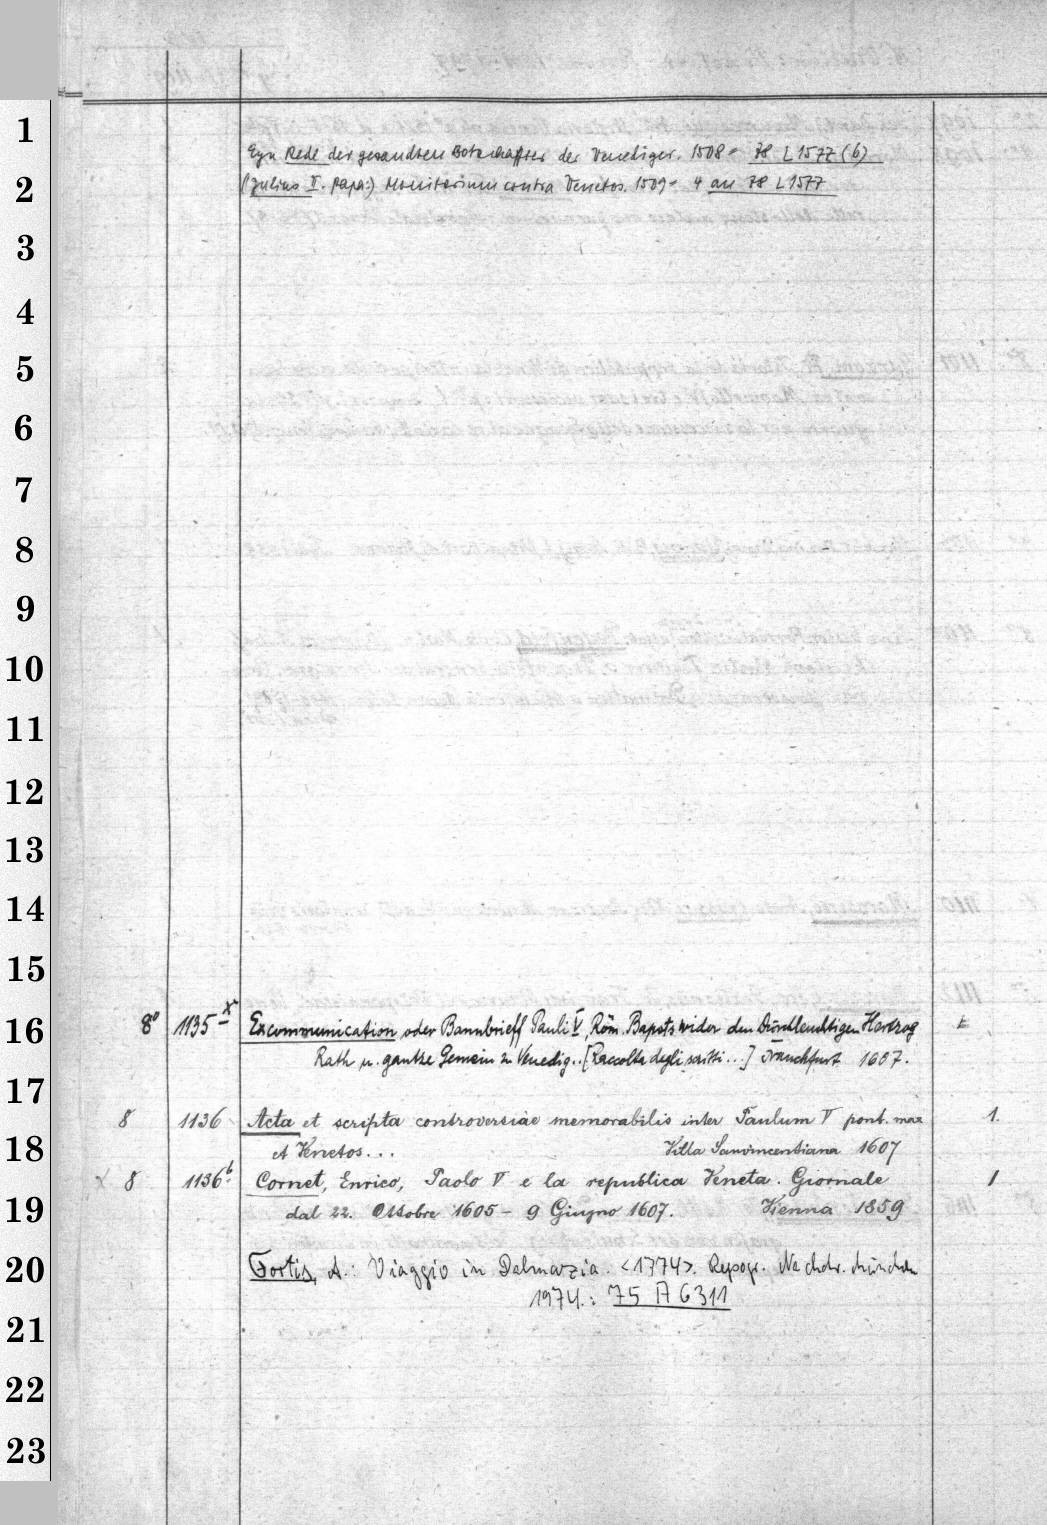 1
Eyn Rede der gesandten Botschaffter der Venediger. 1508 - 78 L 1577 (b)
2
(Julius II. Papa:) Monitorium contra Venetos. 1509 - 4 an 78 L 1577
3
4
5
6
7
8
9
10
11
12
13
14
15
16
8° 1135 x Excommunication oder Bannbrieff Pauli V, Röm. Bapsts wider den Durchleuchtigen Hertzog
Rath u. gantze Gemein zu Venedig.. [Raccolta degli scritti...] Franckfurt 1607.
17
8 1136 Acta et scripta controversiae memorabilis inter Paulum V pont. max 1.
18
et Venetos... Villa Sanvincentiana 1607
x 8 1136b. Cornet, Enrico, Paolo V e la republica Veneta. Giornale 1
19
dal 22. Ottobre 1605 - 9 Giugno 1607. Vienna 1859
20
Fortis, A.: Viaggio in Dalmazia. <1774>. Reprogr. Nachdr. München
1974.: 75 A 6311
21
22
23